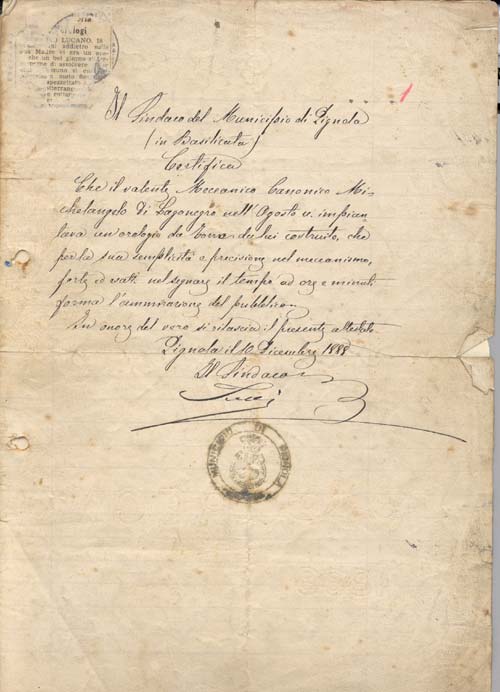 orologi
LUCANO. Is
addietro nella
Il Sindaco del Municipio di Pignola
(in Basilicata)
Certifica
Che il valente Meccanico Canonico Mi-
chelangelo di Lagonegro nell'Agosto u. impian
tava un'orologio da Torre da lui costruito, che
per la sua semplicità e precisione nel meccanismo,
forte ed esatto nel segnare il tempo ad ore e minuti
forma l'ammirazione del pubblico
In onore del vero si rilascia il presente attestato
Pignola il 10 Dicembre 1889
Il Sindaco
MUNICIPIO DI PIGNOLA
1